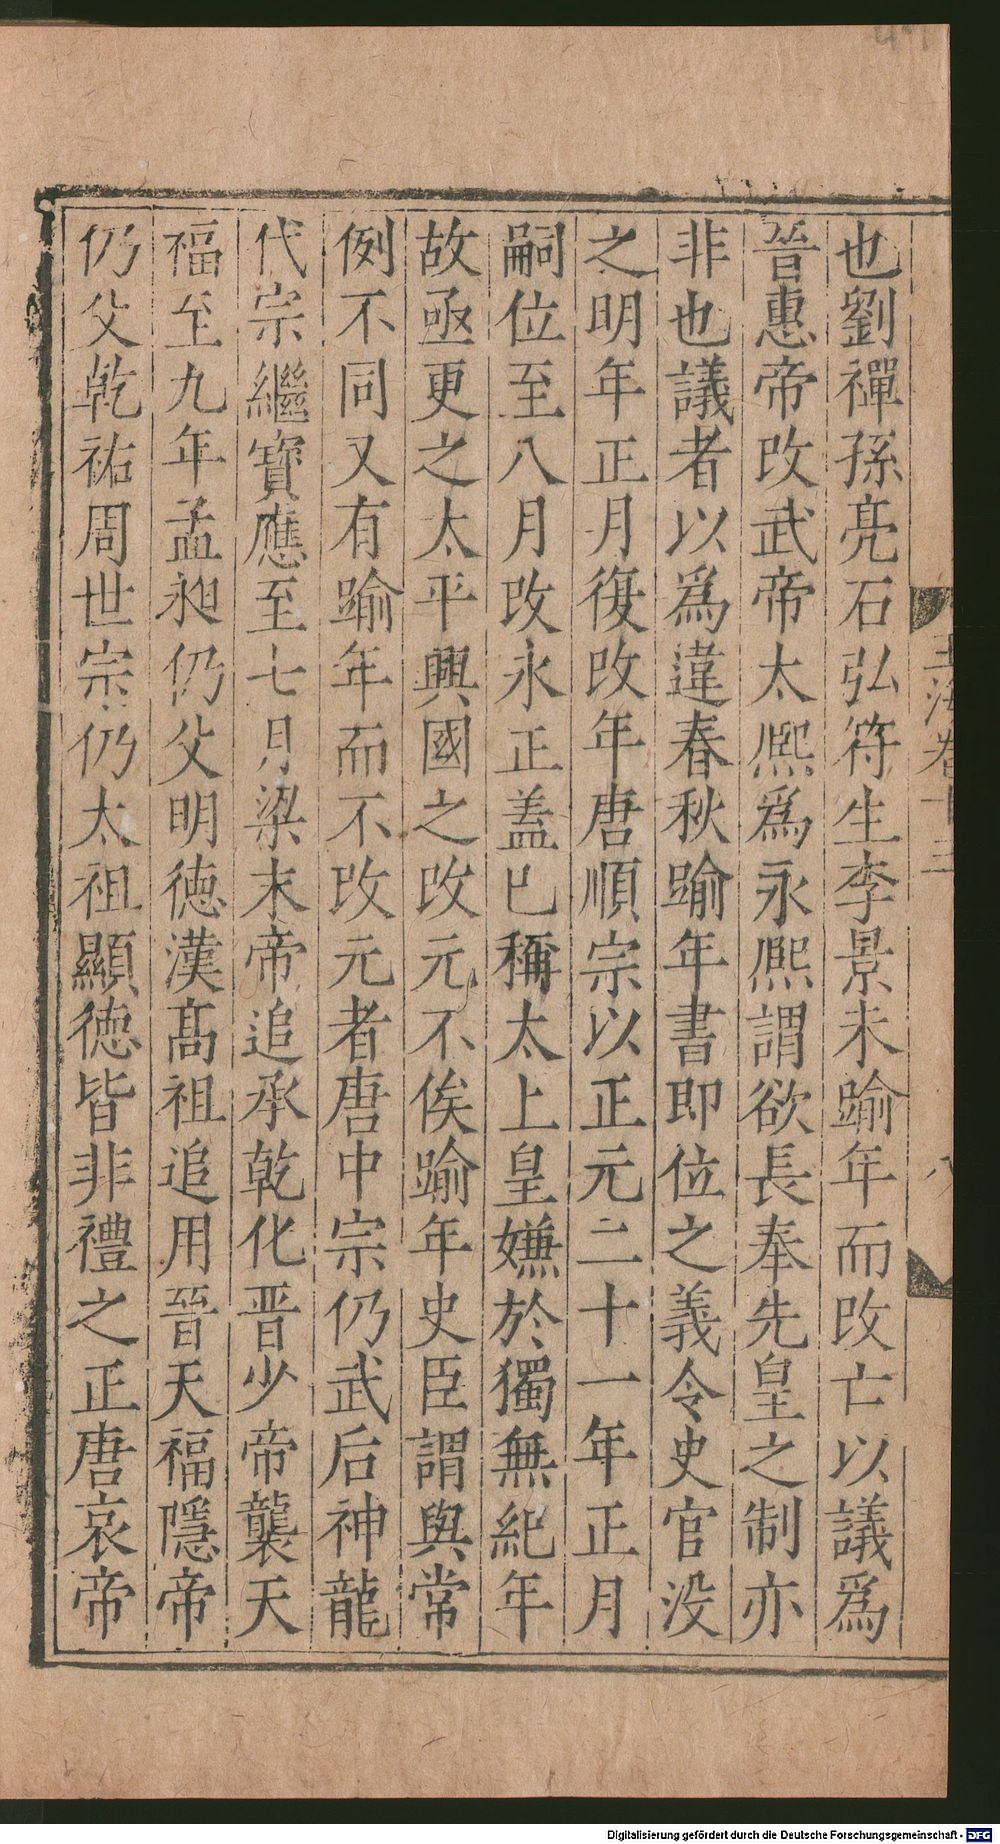 也劉禪孫亮石弘符生李景未踰年而改亡以議爲
晉惠帝改武帝太熈爲永熈謂欲長奉先皇之制亦
非也議者以爲違春秋踰年書即位之義令史官没
之明年正月復改年唐順宗以正元二十一年正月
嗣位至八月改永正蓋已稱太上皇嫌於獨無紀年
故亟更之太平興國之改元不俟踰年史臣謂與常
例不同又有踰年而不改元者唐中宗仍武后神龍
代宗繼寶應至七月梁末帝追承乾化晋少帝襲天
福至九年孟昶仍父明德漢髙祖追用晉天福隱帝
仍父乾祐周世宗仍太祖顯德皆非禮之正唐哀帝
玉海卷十三
八
Digitalisierung gefördert durch die Deutsche Forschungsgemeinschaft - DFG